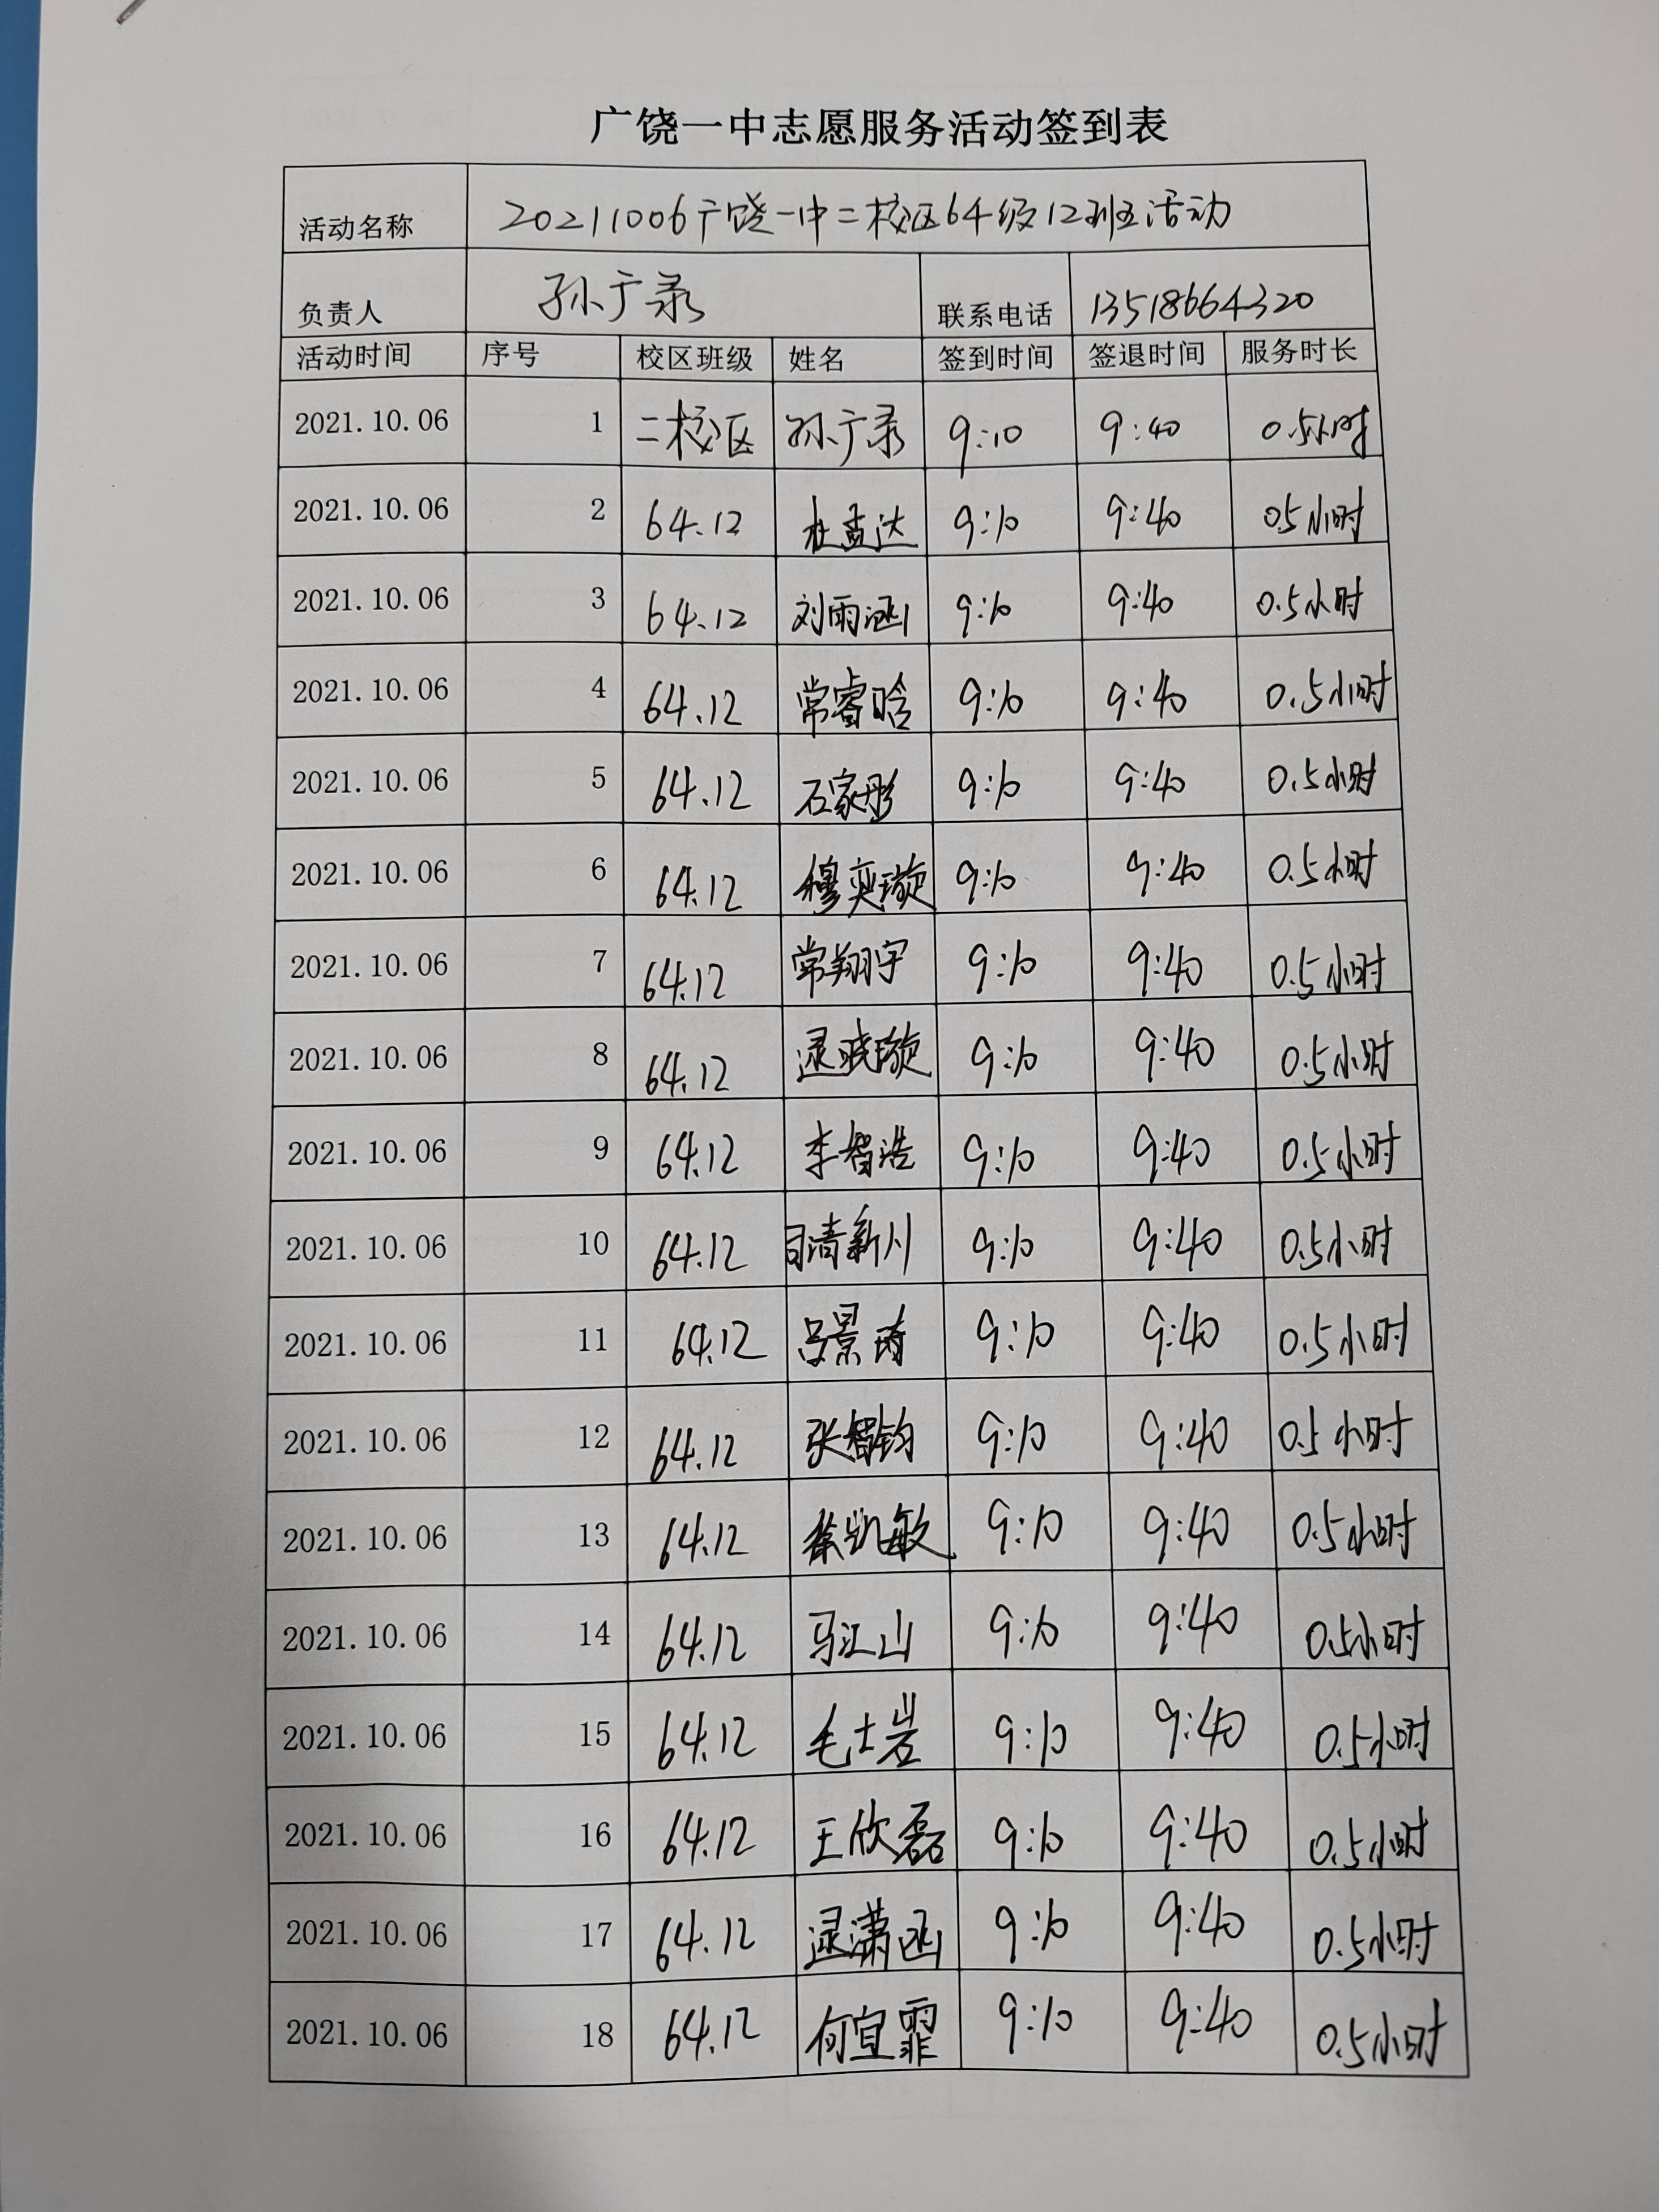 广饶一中志愿服务活动签到表
活动名称 20211006广饶一中二校区64级12班活动
负责人 孙广录 联系电话 13518664320
活动时间 序号 校区班级 姓名 签到时间 签退时间 服务时长
2021.10.06 1 二校区 孙广录 9:10 9:40 0.5小时
2021.10.06 2 64.12 杜孟达 9:10 9:40 0.5小时
2021.10.06 3 64.12 刘雨涵 9:10 9:40 0.5小时
2021.10.06 4 64.12 常睿晗 9:10 9:40 0.5小时
2021.10.06 5 64.12 石家彤 9:10 9:40 0.5小时
2021.10.06 6 64.12 穆奕璇 9:10 9:40 0.5小时
2021.10.06 7 64.12 常翔宇 9:10 9:40 0.5小时
2021.10.06 8 64.12 逯晓璇 9:10 9:40 0.5小时
2021.10.06 9 64.12 李智浩 9:10 9:40 0.5小时
2021.10.06 10 64.12 9:10 9:40 0.5小时
2021.10.06 11 64.12 吕景琦 9:10 9:40 0.5小时
2021.10.06 12 64.12 张智钧 9:10 9:40 0.5小时
2021.10.06 13 64.12 9:10 9:40 0.5小时
2021.10.06 14 64.12 马江山 9:10 9:40 0.5小时
2021.10.06 15 64.12 毛士岩 9:10 9:40 0.5小时
2021.10.06 16 64.12 王欣磊 9:10 9:40 0.5小时
2021.10.06 17 64.12 逯潇函 9:10 9:40 0.5小时
2021.10.06 18 64.12 何宜霏 9:10 9:40 0.5小时